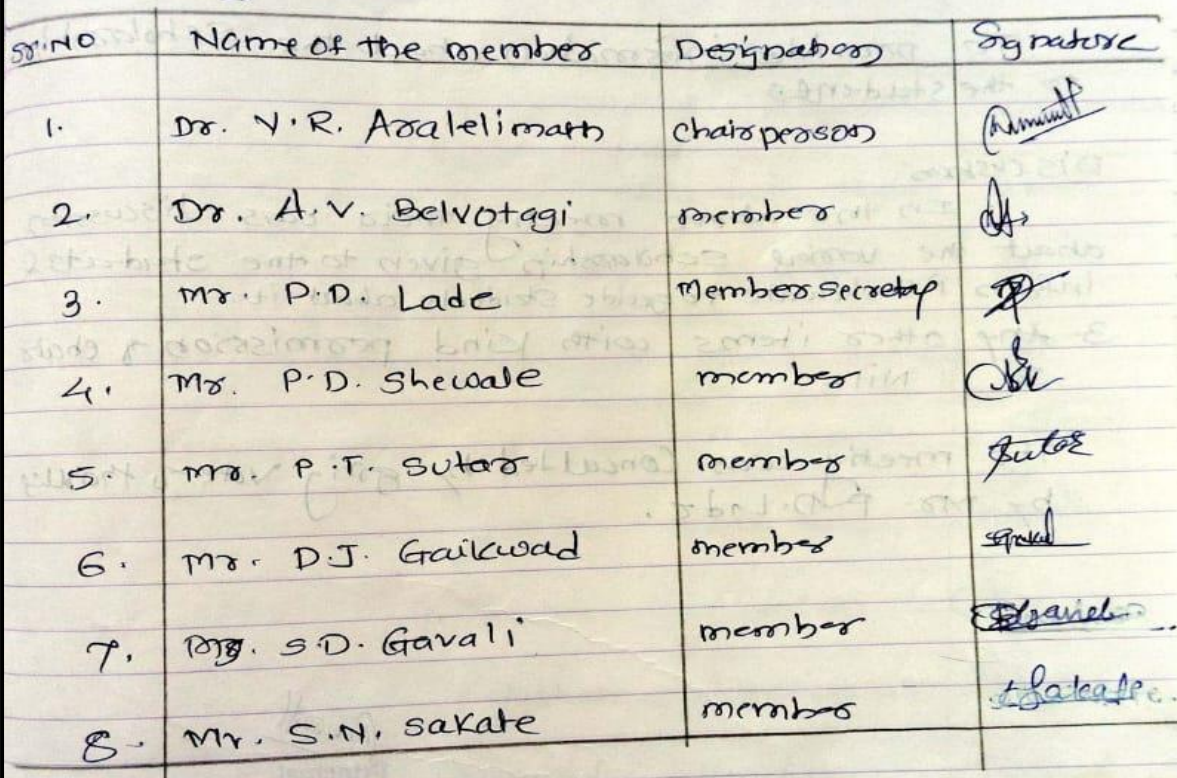 Sr.No Name of the member Designation Signature
1. Dr. V.R. Aralelimath Chairperson
2. Dr. A.V. Belvotagi member
3. Mr. P.D. Lade Member secretary
4. Mr. P.D. Shewale member
5. Mr. P.T. Sutar member Sutar
6. Mr. D.J. Gaikwad member
7. S.D. Gavali member
8. Mr. S.N. Sakate member